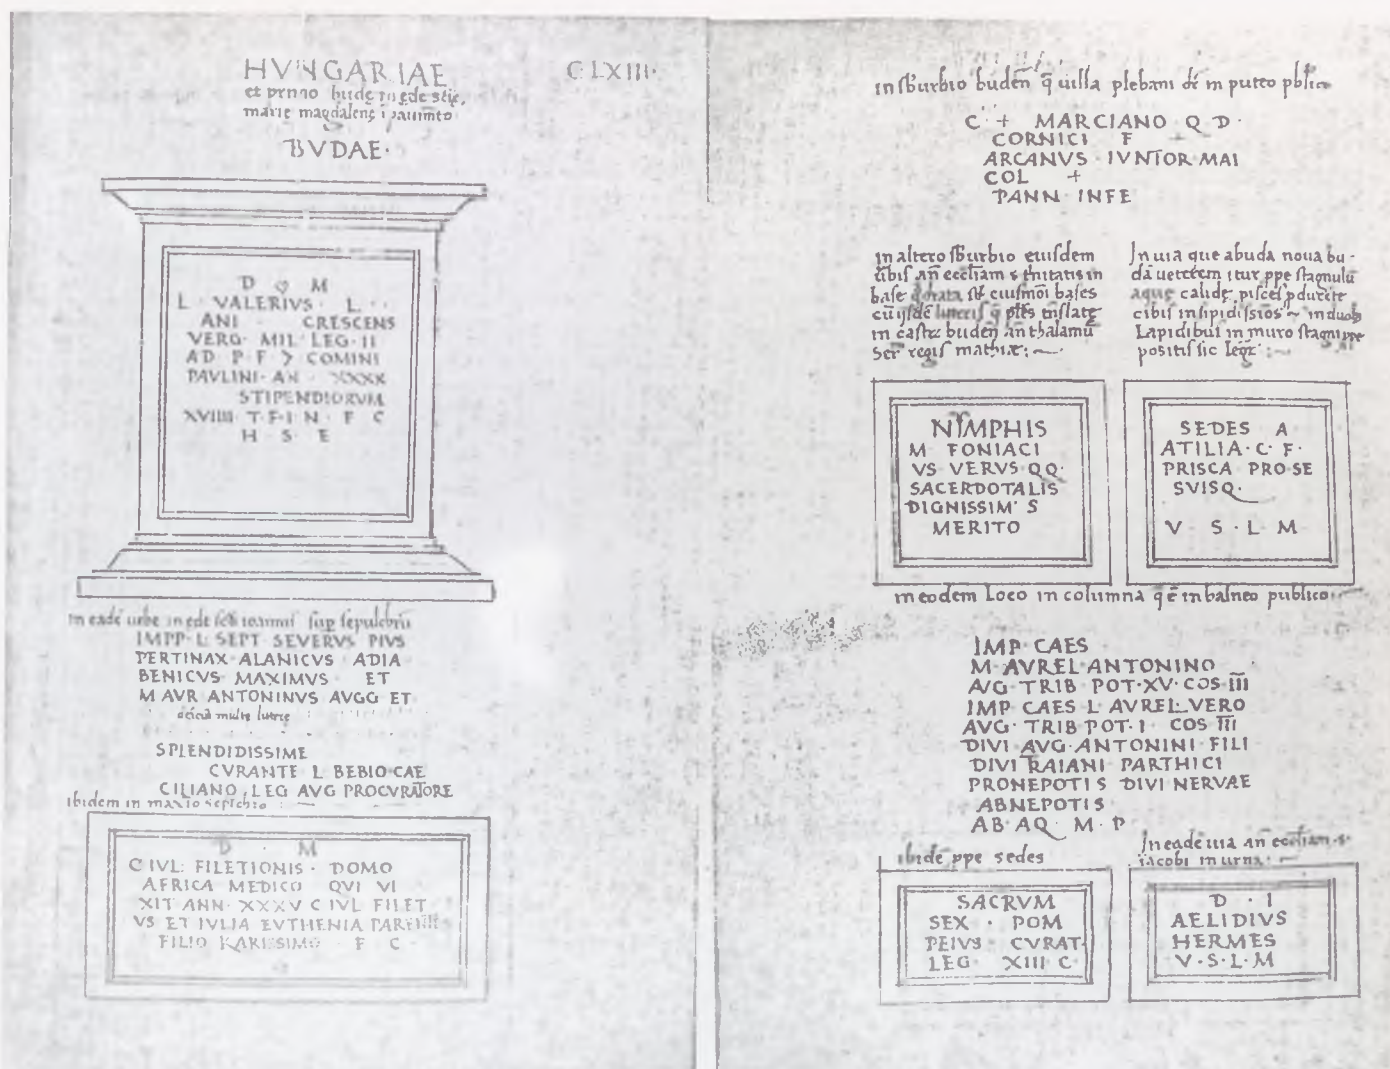 HVNGARIAE
CLXIII·
et prımo bude in ede
marie magdalene i pauimto
BVDAE·
D M
L · VALERIVS · L · ·
ANI CRESCENS
VERG MIL LEG II
AD P F > COMINI
PAVLINI · AN · XXXX
STIPENDIORVM
XVIIII T · F · I · N · F C
H · S · E
In eadē urbe in ede ioannis sup sepulchrū
IMPP L SEPT SEVERVS PIVS
PERTINAX · ALANICVS ADIA
BENICVS MAXIMVS ET
M AVR ANTONINVS AVGG ET
multe
SPLENDIDISSIME
CVRANTE L BEBIO CAE
CILIANO LEG AVG PROCVRATORE
ibidem in
D · M
C IVL FILETIONIS · DOMO
AFRICA MEDICO QVI VI
XIT ANN · XXXV C IVL FILET
VS ET IVLIA EVTHENIA
FILIO KARISSIMO F C
in sburbio buden q uilla plebani in puteo
C + MARCIANO Q D ·
CORNICI F
ARCANVS · IVNTOR MAI
COL +
PANN INFE
in altero sburbio eiusdem
urbis an eccliam s tnitatis in
base eiusmoi bases
cū q ples
in castr buden an thalamū
Ser regis mathiæ : ~
In uia que abuda noua bu-
dā ueterem itur ppe stagnulū
aque calide pisces pducēte
cibis insipidissios in duob
Lapidibus in muro stagni ppe
positis sic : ~
NYMPHIS
M FONIACI
VS VERVS QQ ·
SACERDOTALIS
DIGNISSIM S
MERITO
SEDES A
ATILIA · C · F ·
PRISCA PRO SE
SVISQ ·
V · S · L · M
in eodem Loco in columna q ē in balneo publico
IMP CAES
M · AVREL ANTONINO
AVG TRIB POT · XV · COS III
IMP CAES L AVREL VERO
AVG · TRIB POT · I · COS III
DIVI AVG · ANTONINI FILI
DIVI TRAIANI PARTHICI
PRONEPOTIS DIVI NERVAE
ABNEPOTIS
AB · AQ · M · P
ibidē ppe sedes
In eadē uia an eccliam · s ·
iacobi in urna ·
SACRVM
SEX · POM
PEIVS · CVRAT
LEG XIII C ·
D · I
AELIDIVS
HERMES
V · S · L · M